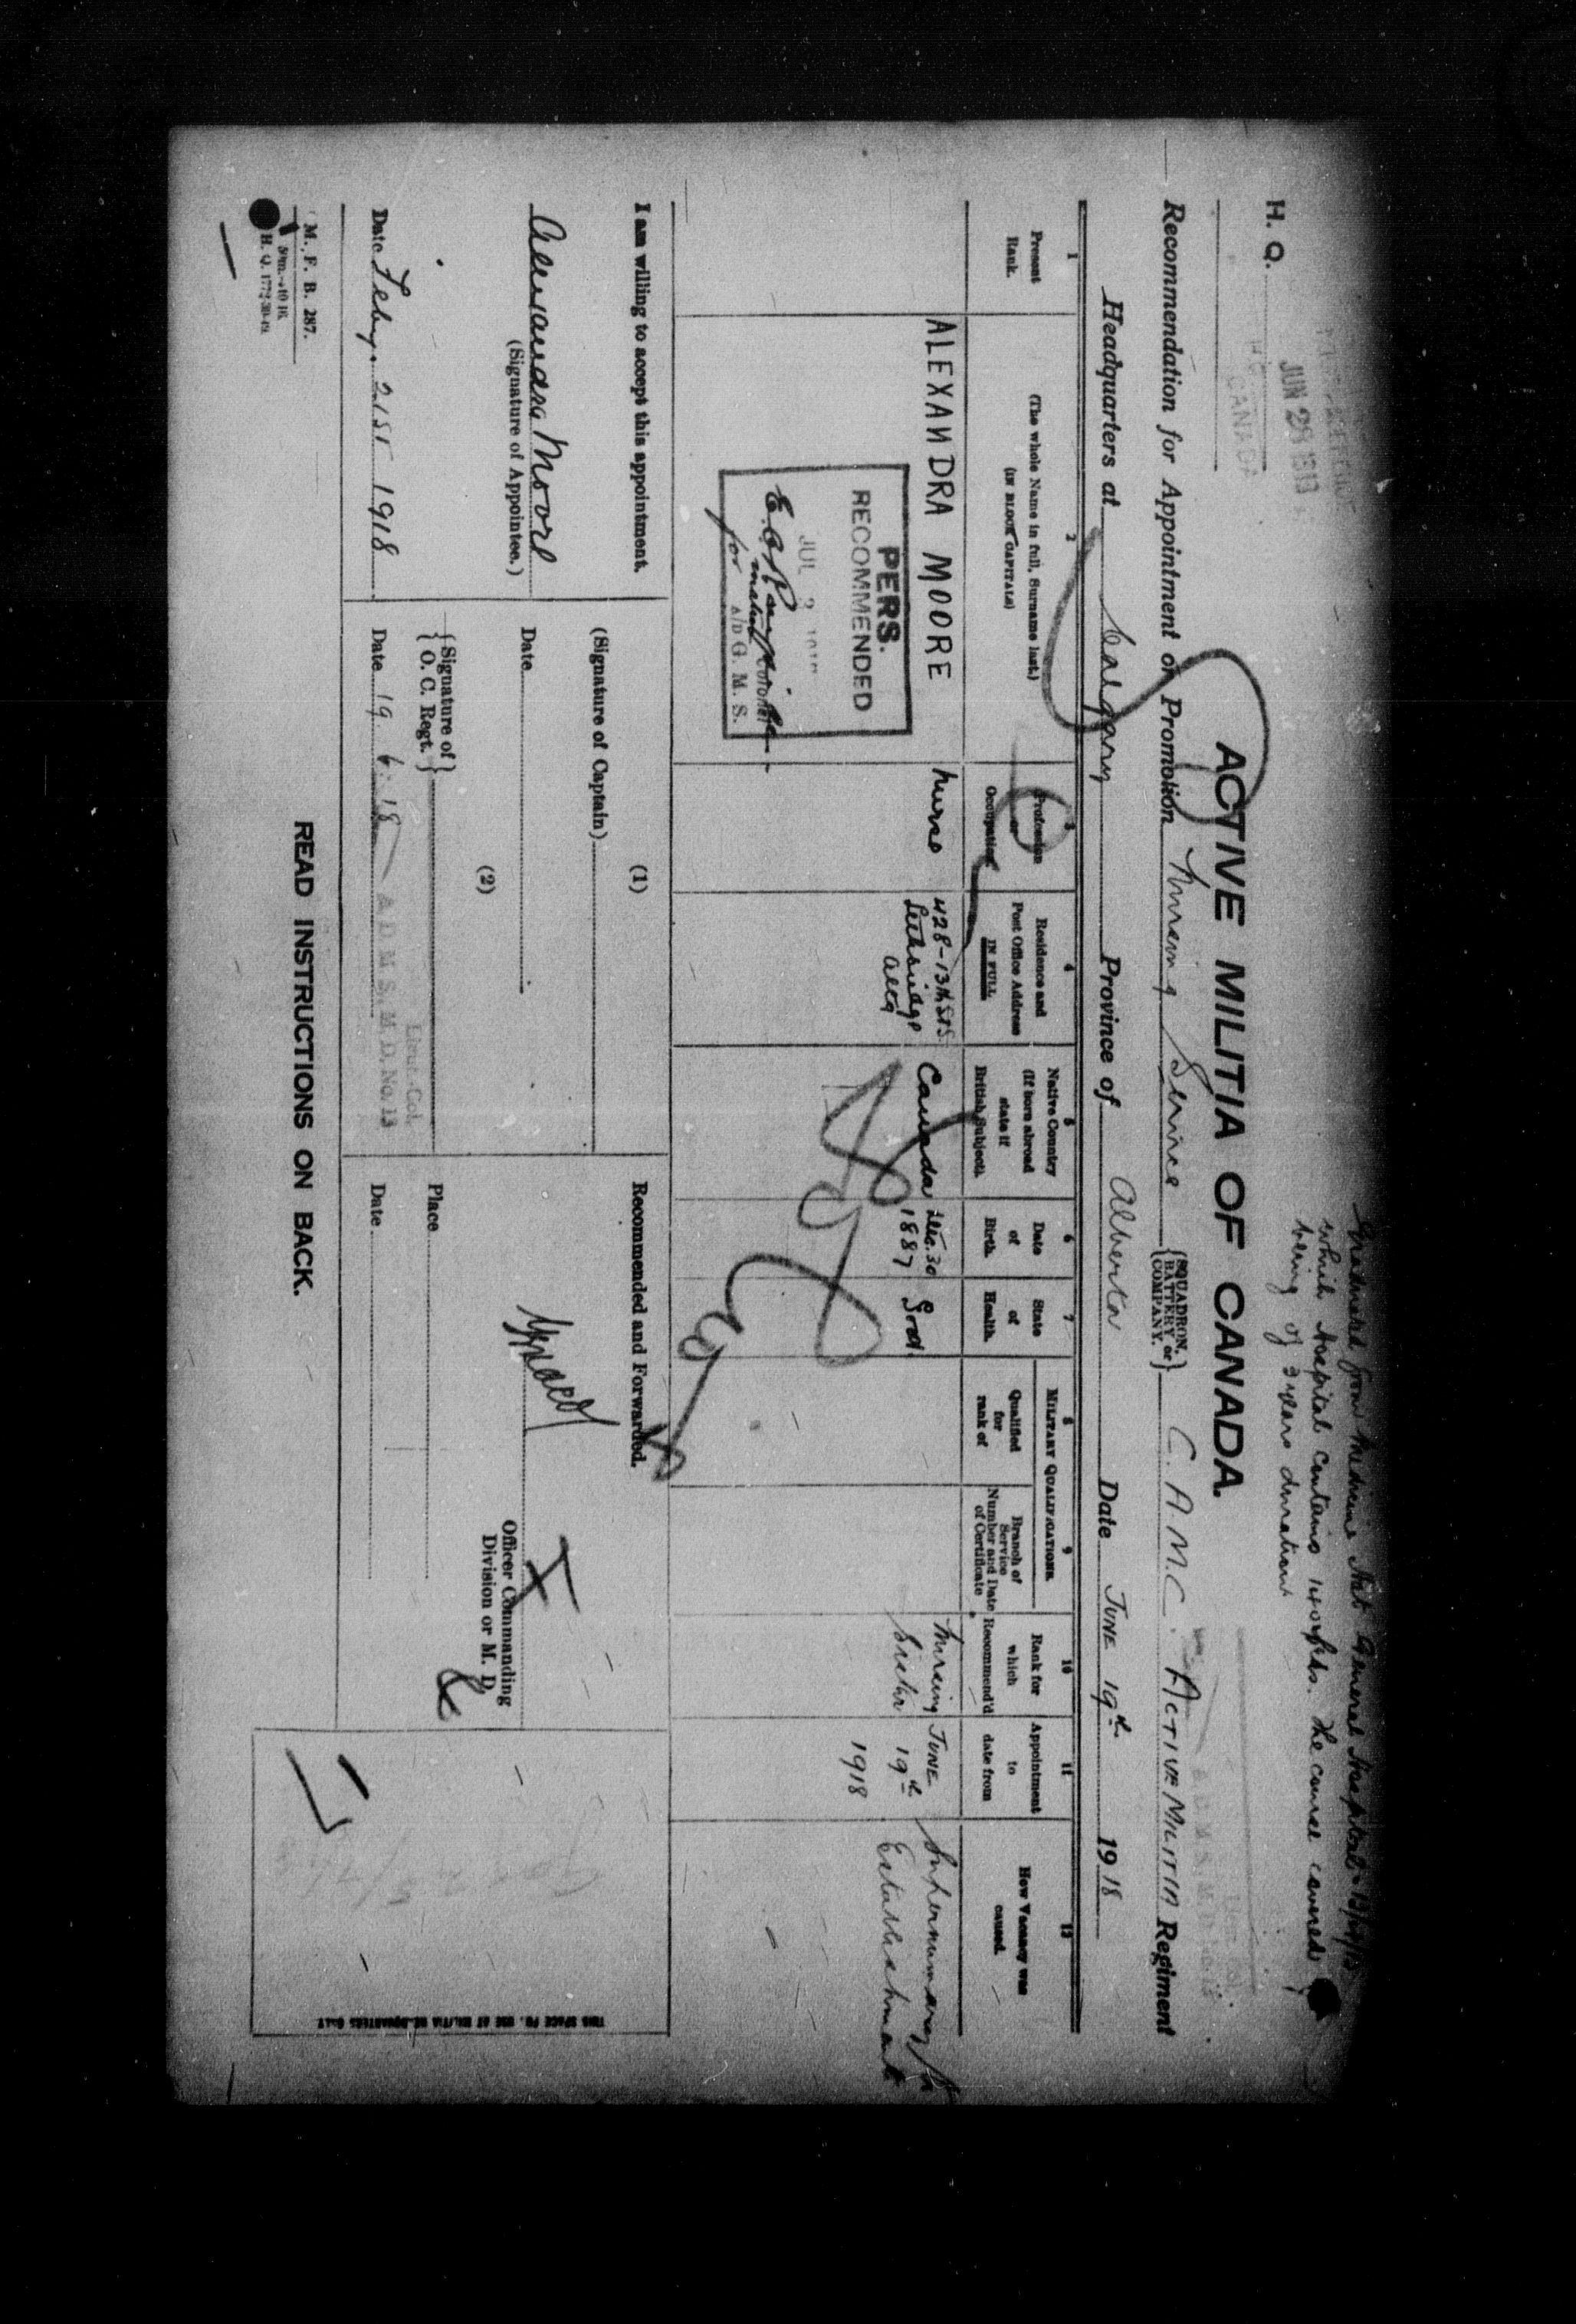 Graduated from Medicine Hat General Hospital
which Hospital contains 140 beds. The course covered
being of 3 years duration
H. Q.
JUN 28 1918
CANADA
ACTIVE MILITIA OF CANADA.
Recommendation for Appointment or Promotion Nursing Service {SQUADRON, BATTERY or COMPANY.} C. A. M. C. ACTIVE MILITIA Regiment
Headquarters at Calgary Province of Alberta Date JUNE 19th 1918
1 Present Rank.
2 (The whole Name in full, Surname last.) (IN BLOCK CAPITALS)
3 Profession or Occupation
4 Residence and Post Office Address IN FULL
5 Native Country (If born abroad state if British Subject).
6 Date of Birth.
7 State of Health.
MILITARY QUALIFICATIONS.
8 Qualified for rank of
9 Branch of Service Number and Date of Certificate
10 Rank for which Recommend'd
11 Appointment to date from
12 How Vacancy was caused.
ALEXANDRA MOORE
Nurse
428-13th St S.
Lethbridge
Alta
Canada
Dec. 30
1887
Good.
Nursing
Sister
JUNE
19th
1918
Supernumerary to
Establishment
PERS.
RECOMMENDED
JUL
for A/D G. M. S.
I am willing to accept this appointment.
Alexandra Moore
(Signature of Appointee.)
Date Feby. 21st 1918
(1)
(Signature of Captain)
Date
(2)
{Signature of O. C. Regt.}
Lieut.-Col.
Date 19 6 18 A. D. M. S., M. D. No. 13
Recommended and Forwarded.
Officer Commanding
Division or M. D.
Place
Date
THIS SPACE FOR USE AT MILITIA HEADQUARTERS ONLY
M. F. B. 287.
H. Q. 1772-39-
READ INSTRUCTIONS ON BACK.